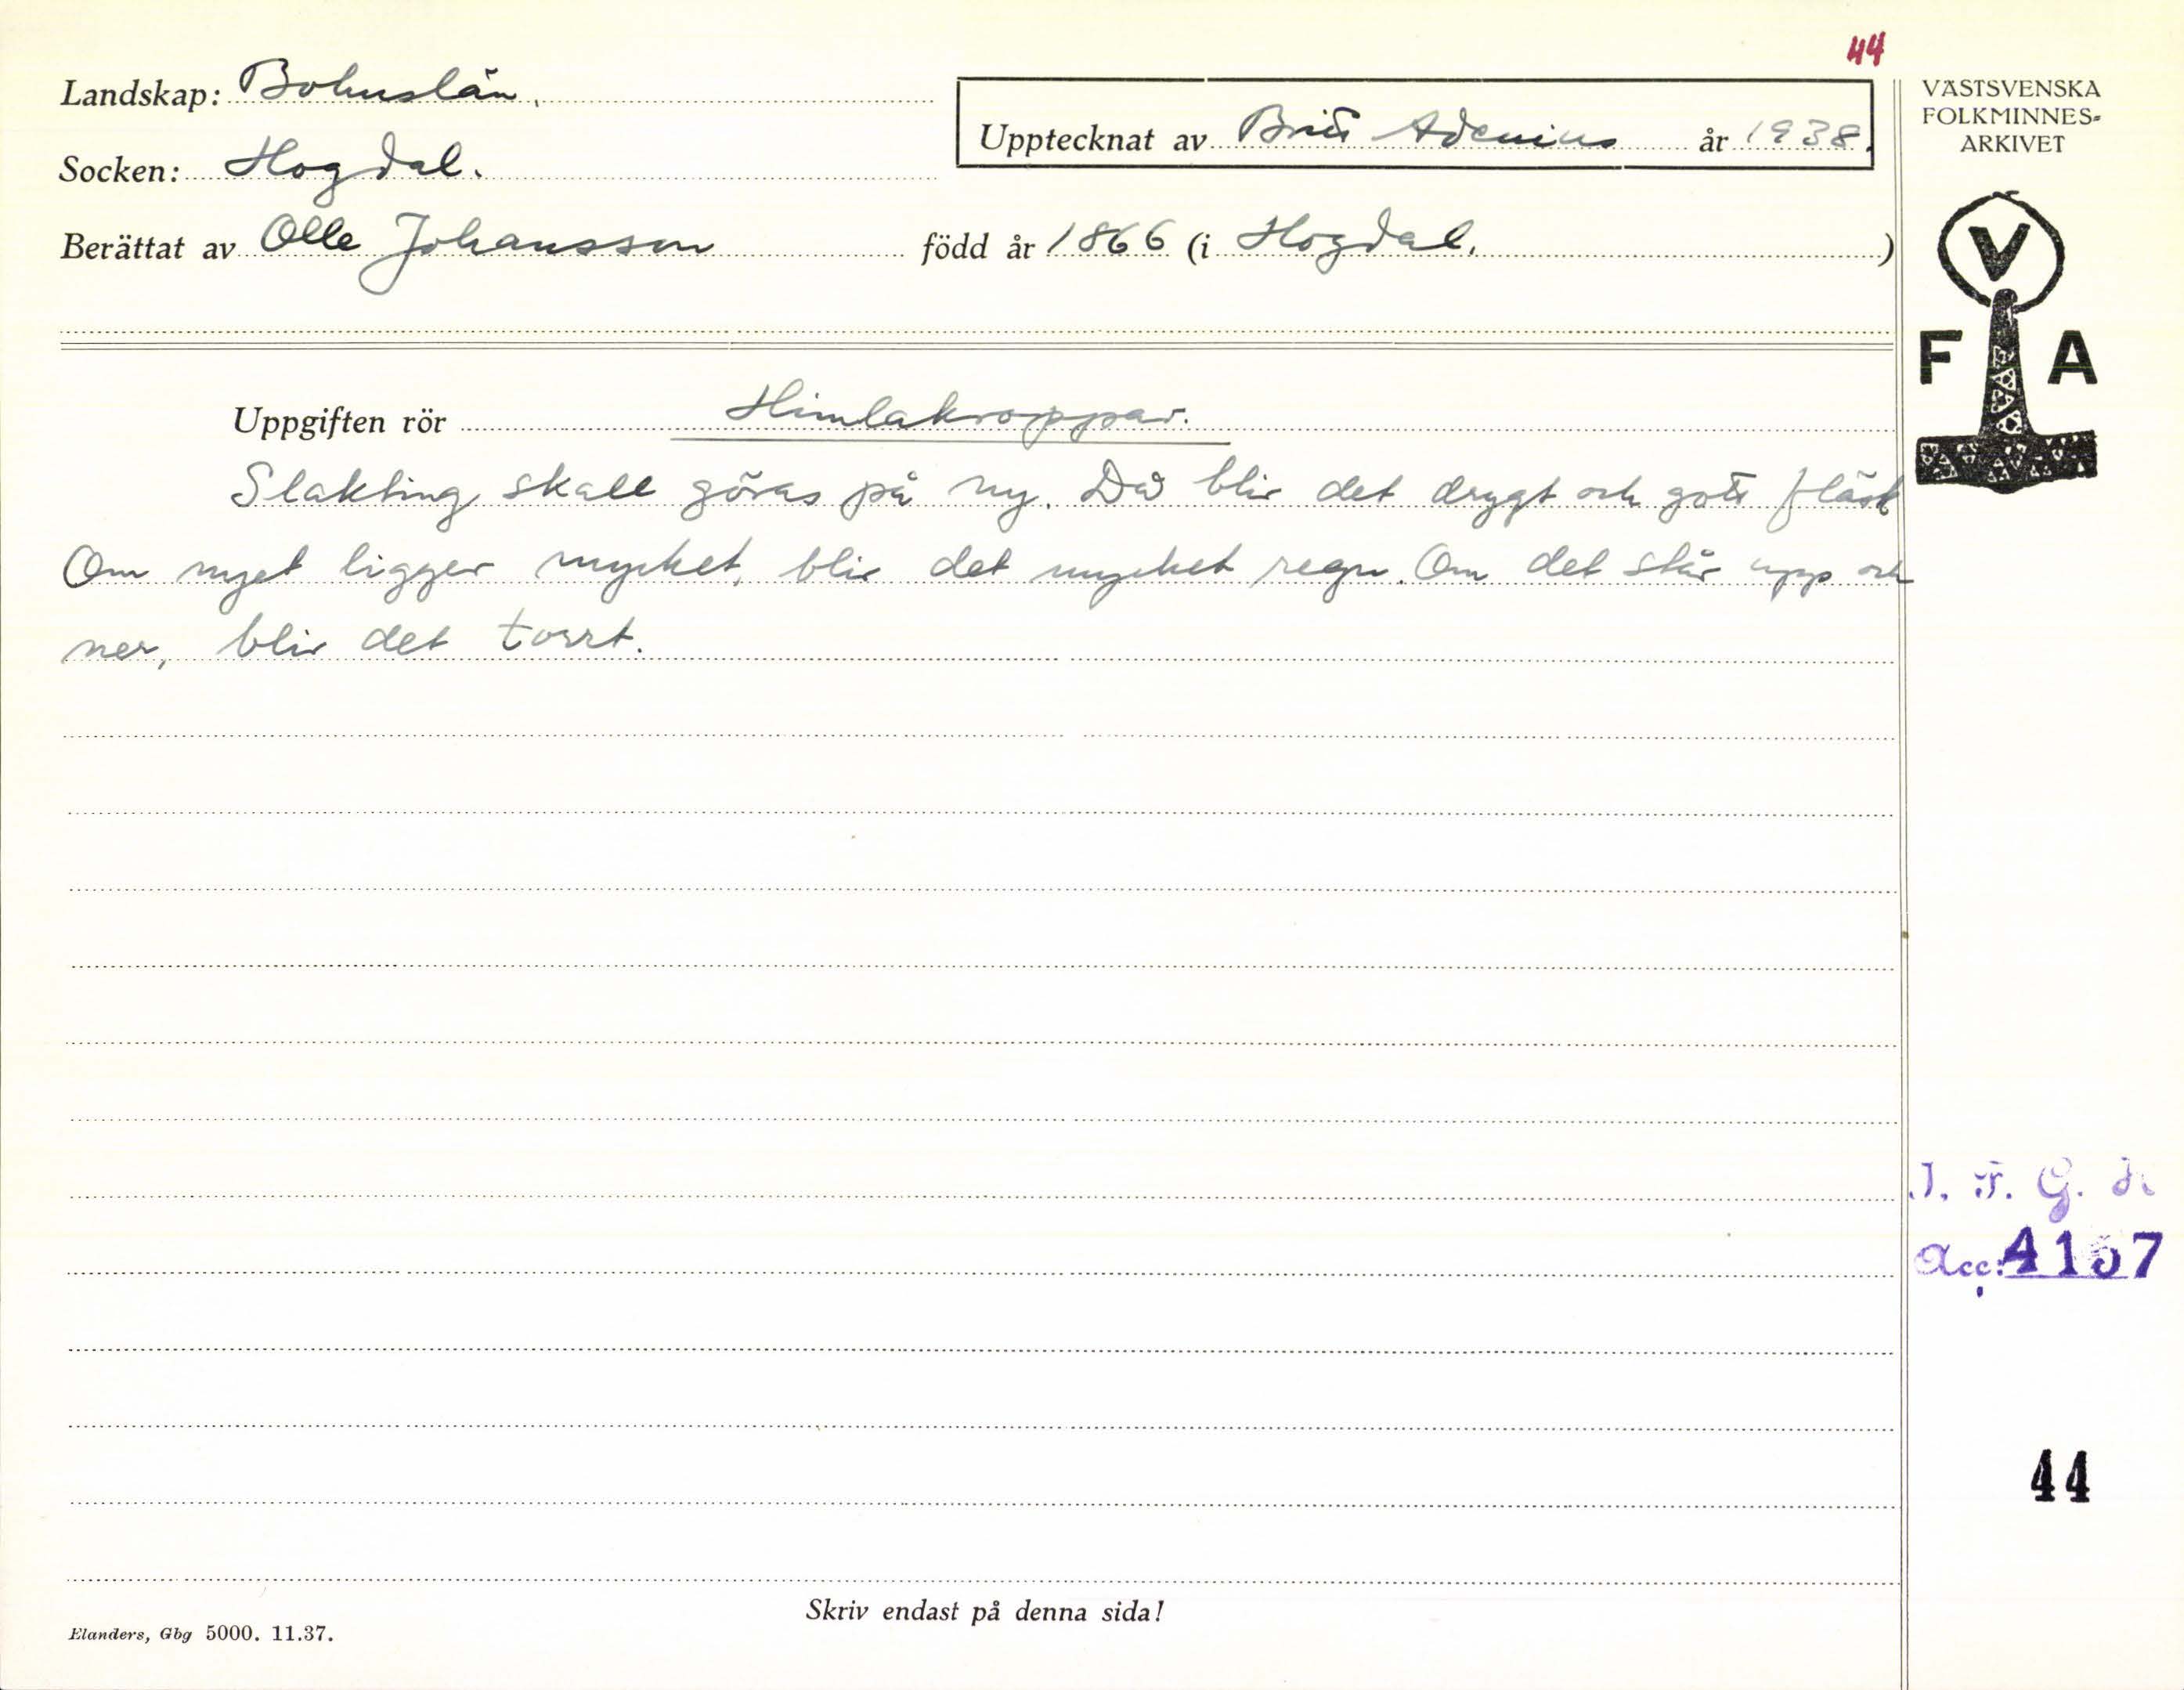 44
Landskap: Bohuslän.
Upptecknat av Britt Adenius år 1938.
Socken: Hogdal.
Berättat av Olle Johansson född år 1866 (i Hogdal. )
VÄSTSVENSKA
FOLKMINNES-
ARKIVET
V
F A
Uppgiften rör Himlakroppar.
Slakting skall göras på ny. Då blir det drygt och gott fläsk
Om nyet ligger mycket, blir det mycket regn. Om det står upp och
ner, blir det torrt.
Acc: 4157
44
Skriv endast på denna sida!
Elanders, Gbg 5000. 11.37.